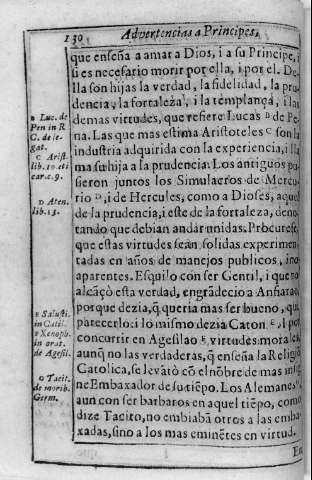 130 Advertencias a Principes,
que enseña a amar a Dios, i a su Principe, i
si es necesario morir por ella, i por el. De
lla son hijas la verdad, la fidelidad, la pru
dencia, la fortaleza, i la templança, i las
demas virtudes, que refiere Lucas B de Pe
na. Las que mas estima Aristoteles C son la
industria adquirida con la experiencia, i lla
ma su hija a la prudencia. Los antiguos pu
sieron juntos los Simulacros de Mercu
rio D, i de Hercules, como a Dioses, aquel
de la prudencia, i este de la fortaleza, deno
tando que debian andar unidas. Procurese,
que estas virtudes seãn solidas experimen
tadas en años de manejos publicos, i no
aparentes. Esquilo con ser Gentil, i que no
alcãçò esta verdad, engrãdecio a Anfiarao,
porque dezia, q̃ queria mas ser bueno, que
parecerlo: i lo mismo dezia Caton E. I por
concurrir en Agesilao F virtudes morales,
aunq̃ no las verdaderas, q̃ enseña la Religiõ
Catolica, se levãtò cõ el nõbre de mas insig
ne Embaxador de su tiẽpo. Los Alemanes G
aun con ser barbaros en aquel tiẽpo, como
dize Tacito, no embiabã otros a las emba
xadas, sino a los mas eminẽtes en virtud.
B Luc. de
Pen in R
C. de le-
gat.
C Arist.
lib. 10 eti
car. c. 9.
D Aten.
lib. 13.
E Salusti.
in Catil.
F Xenoph.
in orat.
de Agesil.
G Tacit.
de morib.
Germ.